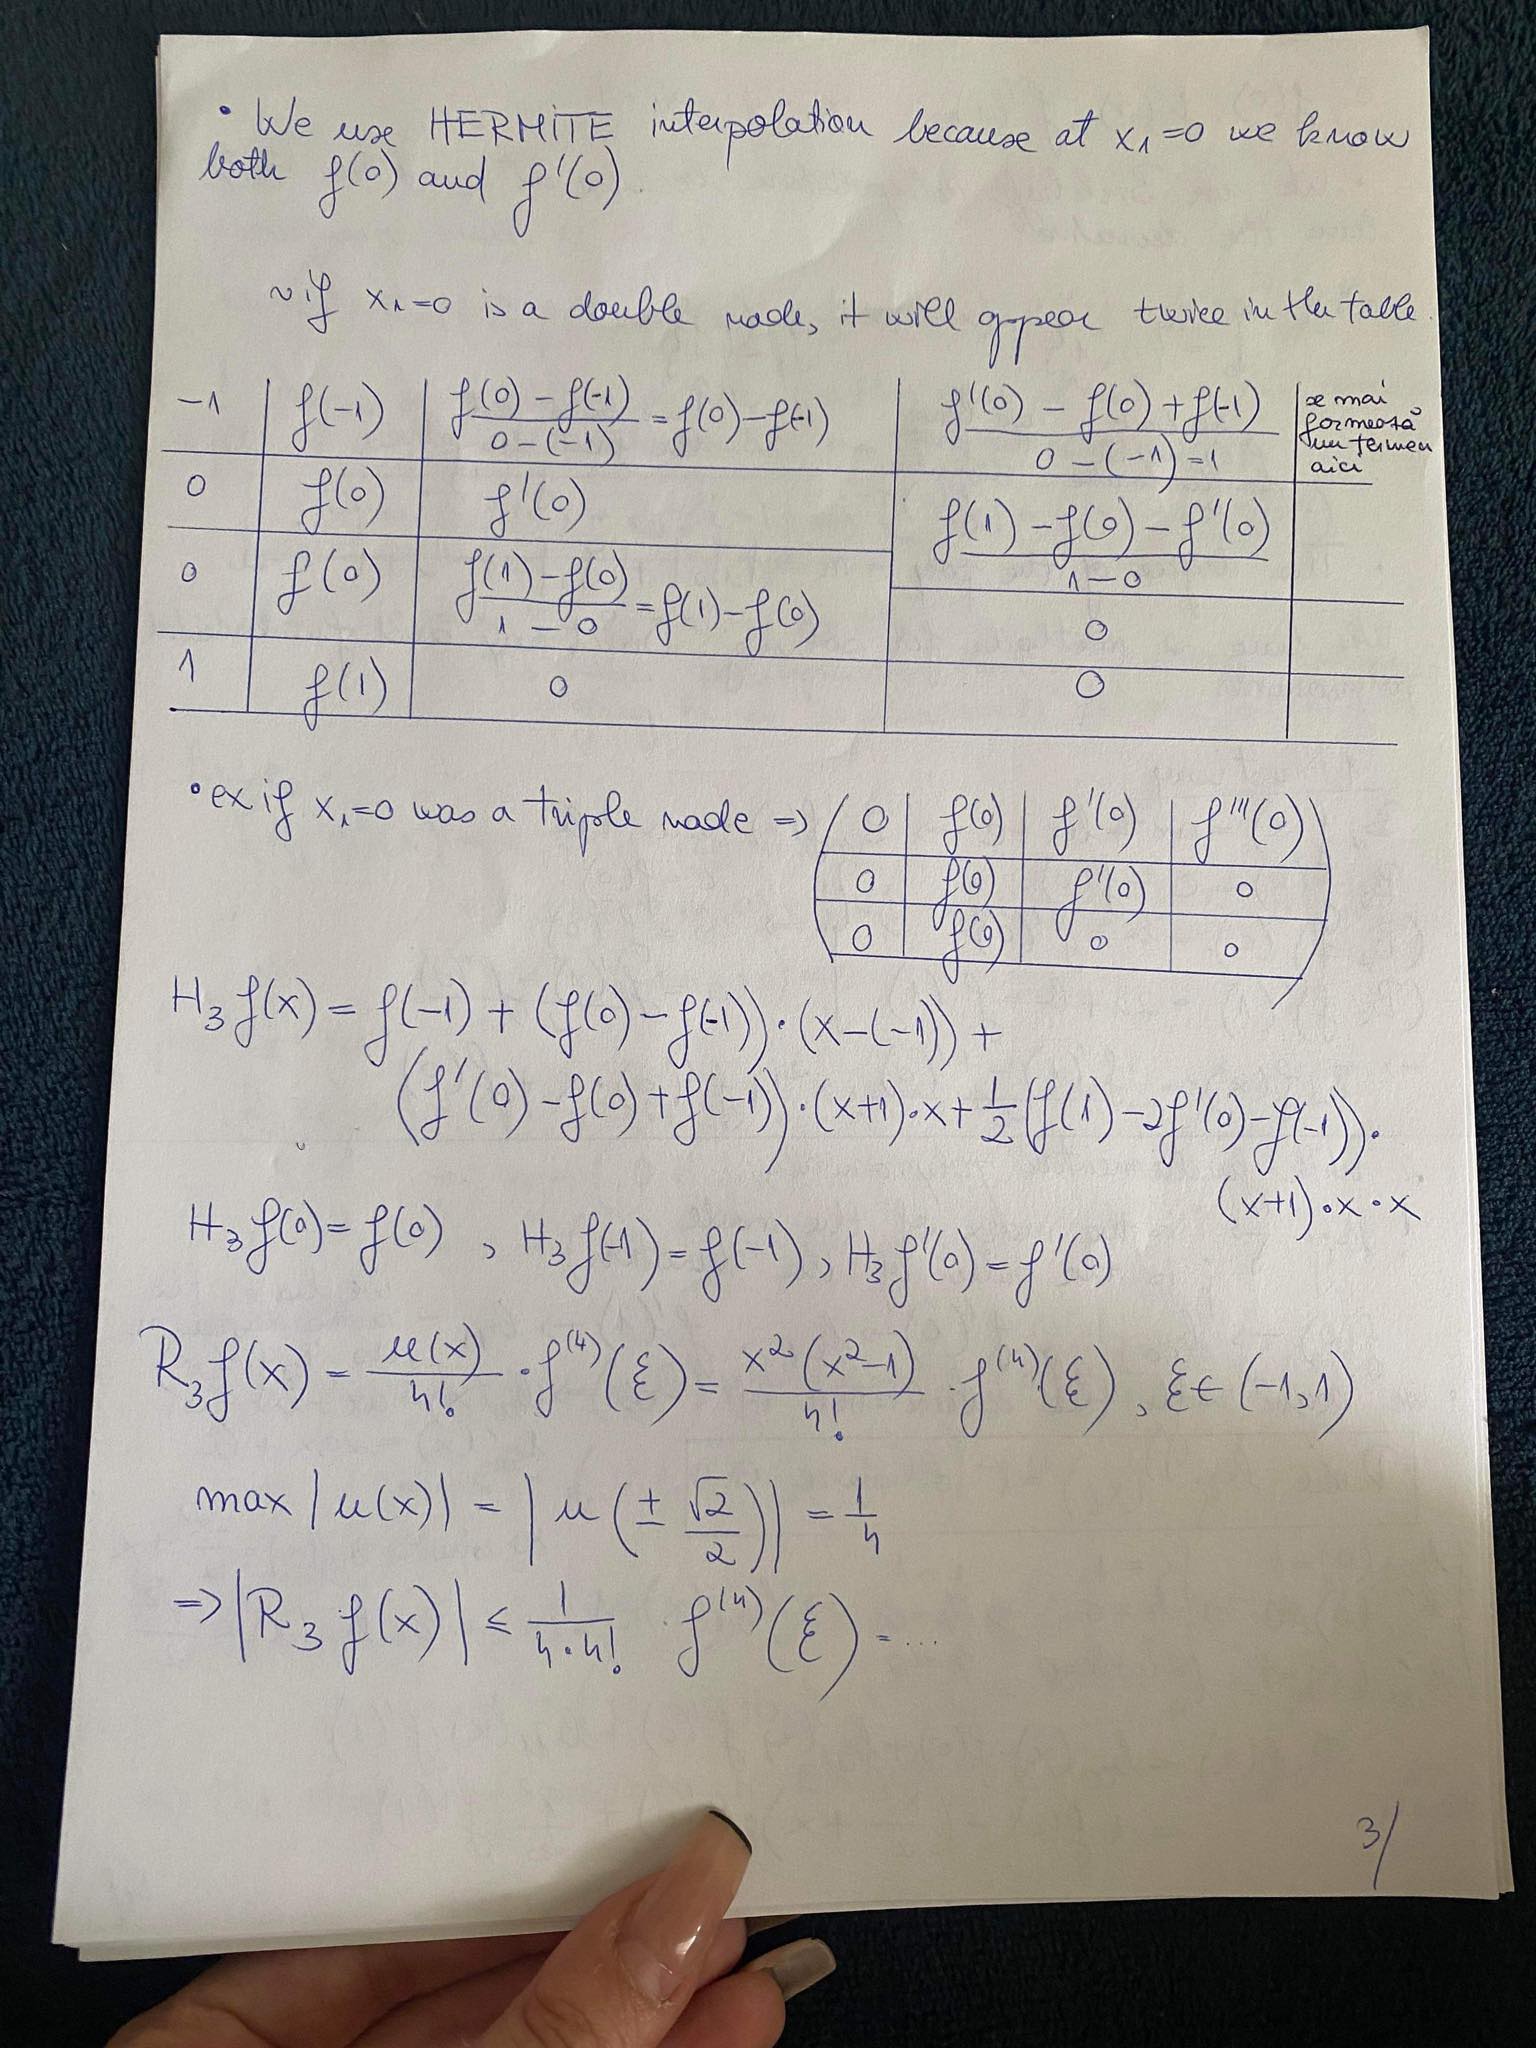 • We use HERMITE interpolation because at x₁=0 we know
both f(0) and f'(0).
~ if x₁=0 is a double node, it will appear twice in the table.
-1 | f(-1) | (f(0) - f(-1))/(0-(-1)) = f(0)-f(-1) | (f'(0) - f(0) + f(-1))/(0-(-1)=1) | se mai formează un termen aici
0 | f(0) | f'(0) | (f(1) - f(0) - f'(0))/(1-0)
0 | f(0) | (f(1)-f(0))/(1-0) = f(1)-f(0) | 0
1 | f(1) | 0 | 0
• ex if x₁=0 was a triple node =>
0 | f(0) | f'(0) | f'''(0)
0 | f(0) | f'(0) | 0
0 | f(0) | 0 | 0
H₃f(x) = f(-1) + (f(0) - f(-1))·(x-(-1)) +
(f'(0) - f(0) + f(-1))·(x+1)·x + 1/2 (f(1) - 2f'(0) - f(-1))·
(x+1)·x·x
H₃f(0) = f(0), H₃f(-1) = f(-1), H₃f'(0) = f'(0)
R₃f(x) = u(x)/4! · f⁽⁴⁾(ξ) = x²(x²-1)/4! · f⁽⁴⁾(ξ), ξ∈(-1,1)
max |u(x)| = |u(± √2/2)| = 1/4
=> |R₃f(x)| ≤ 1/(4·4!) · f⁽⁴⁾(ξ) = ...
3/